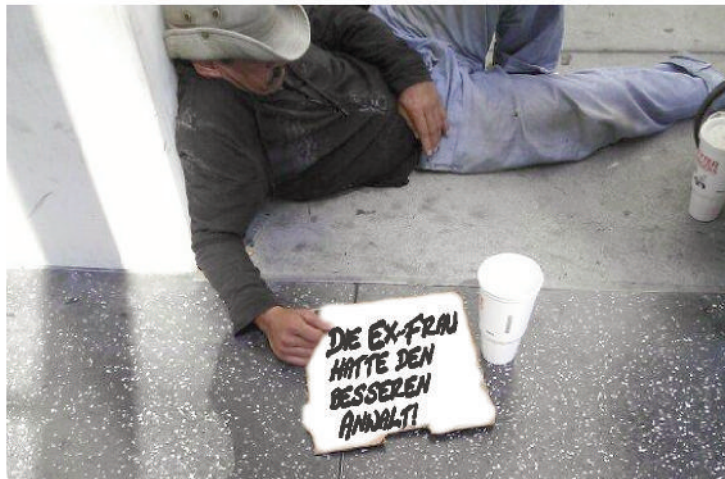 DIE EX-FRAU
HATTE DEN
BESSEREN
ANWALT!